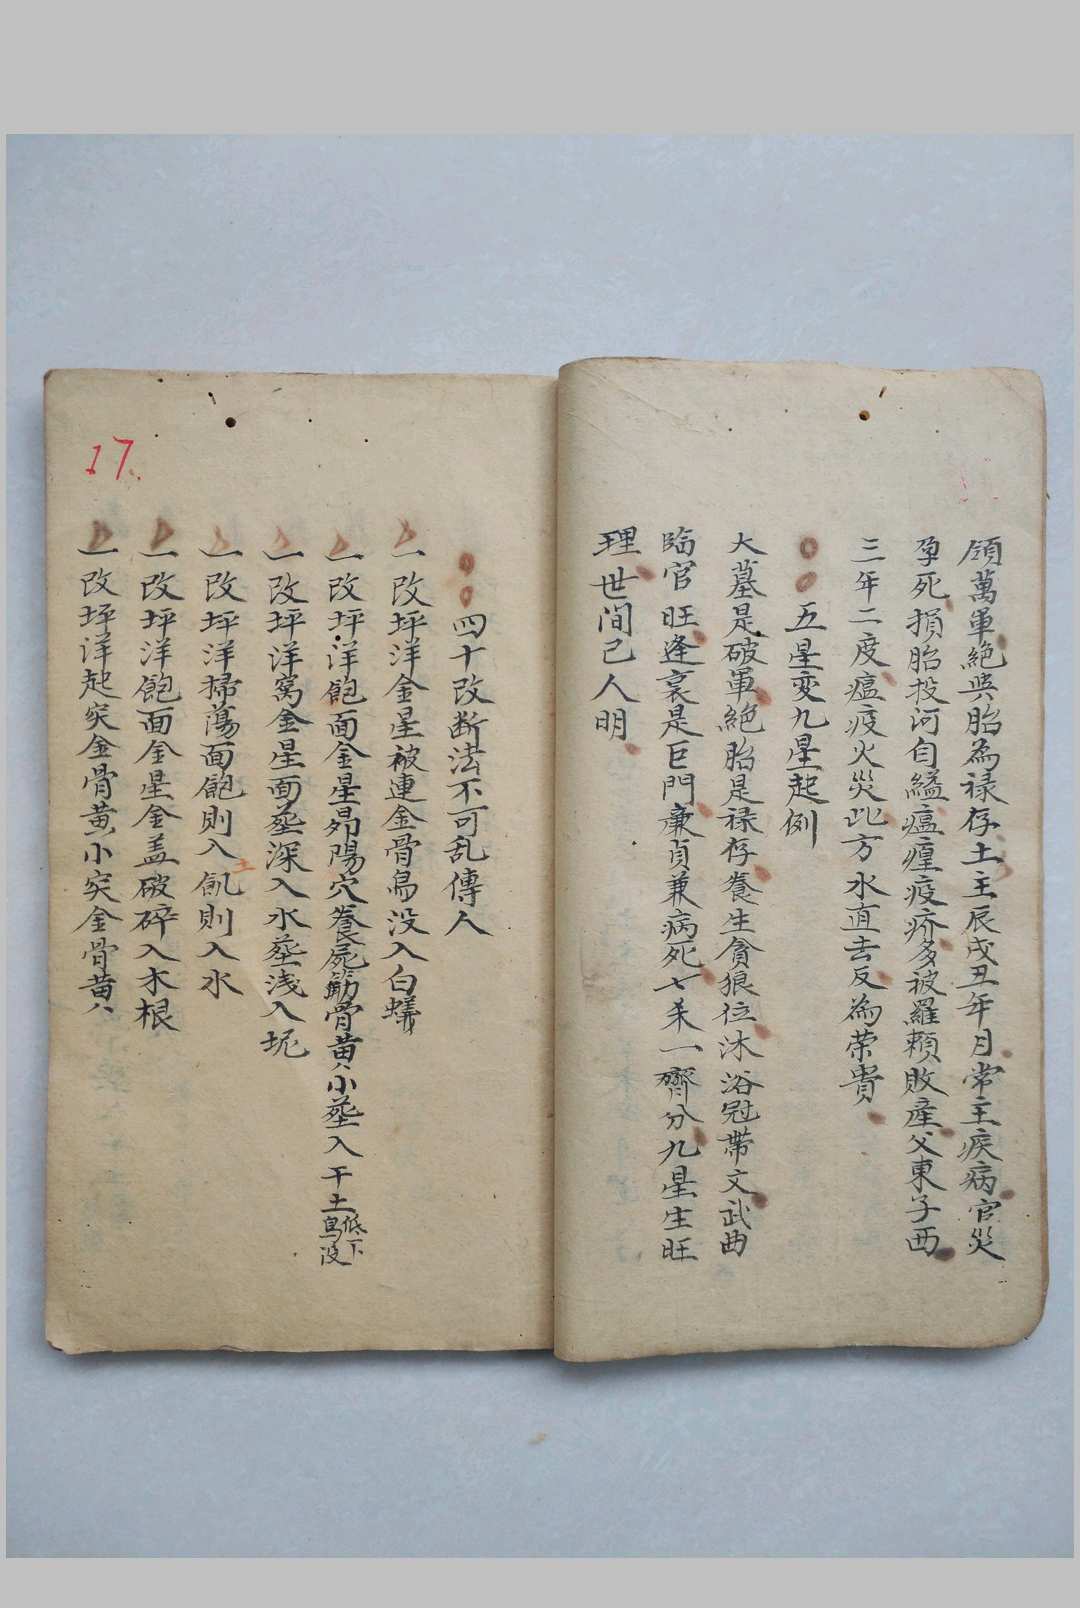 領萬軍絕與胎為祿存土主辰戌丑年月常主疾病官災
孕死損胎投河自縊瘟瘴疫疥多被羅賴敗產父東子西
三年二度瘟疫火災此方水直去反為榮貴
五星変九星起例
大墓是破軍絕胎是禄存養生貪狼位沐浴冠帶文武曲
臨官旺逢衰是巨門廉貞兼病死七杀一齊分九星生旺
理世间己人明
四十改断法不可乱傳人
一改坪洋金星被連金骨烏没入白蟻
一改坪洋飽面金星昻陽穴養屍觔骨黄八小塟入干土低下烏没
一改坪洋窩金星面塟深入水塟浅入坭
一改坪洋掃蕩面飽則入土飢則入水
一改坪洋飽面金星金盖破碎入木根
一改坪洋起突金骨黄八小突金骨黄八
17.